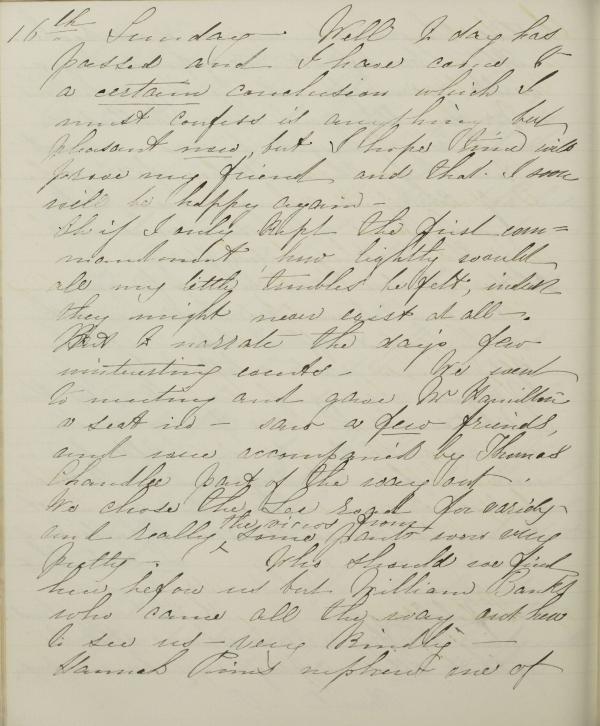 16th Sunday. Well to day has
passed and I have come to
a certain conclusion which I
must confess is anything but
pleasant now, but I hope time will
prove my friend and that I soon
will be happy again -
Oh if I only kept the first com=
mandment, how lightly would
all my little troubles be felt, indeed
they might never exist at all -
But to narrate the days few
uninteresting events - We went
to meeting and gave Mr Hamilton
a seat in - saw a few friends,
and were accompanied by Thomas
Chandlee part of the way out.
We chose the Lee road for variety
and really the views from some parts were very
pretty. Who should we find
here before us but William Banks
who came all the way out here
to see us - very kindly -
Hannah Pims nephew one of